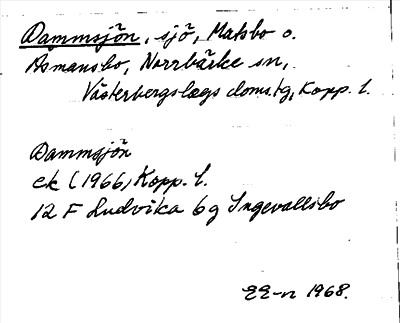 Dammsjön, sjö, Matsbo o.
Åsmansbo, Norrbärke sn,
Västerbergslags doms.tg, Kopp. l.
Dammsjön
ek (1966) Kopp. l.
12 F Ludvika 6 g Ingevallsbo
EE-n 1968.